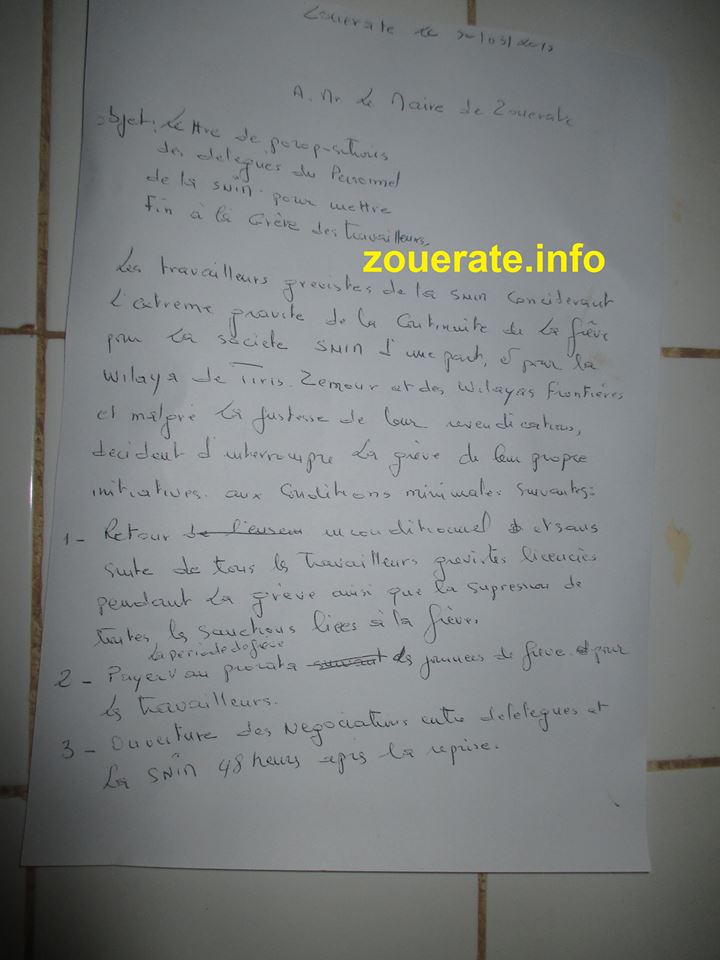 Zouerate le
A. Mr Le Maire de Zouerate
objet: Lettre de poropositions
des delegues du Personnel
de la SNIM. pour mettre
Fin à la Grève des travailleurs.
zouerate.info
Les travailleurs grevistes de la SNIM Conciderant
L'extreme gravite de la Continuite de La grève
pour La societe SNIM d'une part, et pour la
Wilaya de Tiris. Zemour et des Wilayas frontières
et malgré La justesse de leur revendications,
decident d'interrompre La grève de leur propre
initiatives. aux Conditions minimales suivantes:
1- Retour inconditionnel et sans
suite de tous les travailleurs grevistes licenciés
pendant La grève ainsi que la supression de
toutes les sanctions liees à la Grève.
la periode de grève
2- Payer au prorata des journees de Grève pour
les travailleurs.
3- Ouverture des Negociations entre delelegues et
La SNIM 48 heurs apres la reprise.